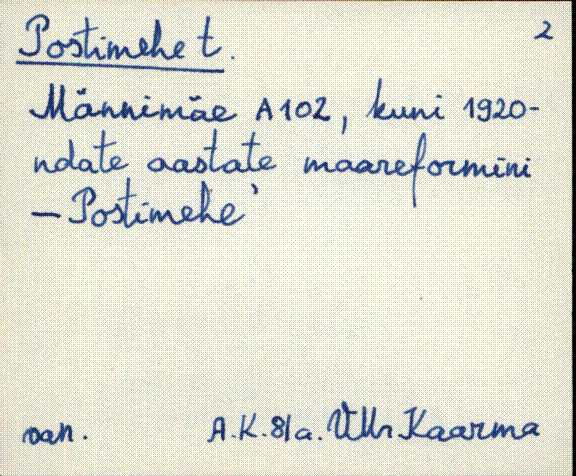 Postimehe t. 2
Männimäe A102, kuni 1920-
ndate aastate maareformini
— Postimehe'
van. A.K. 81a. Ülle Kaarma